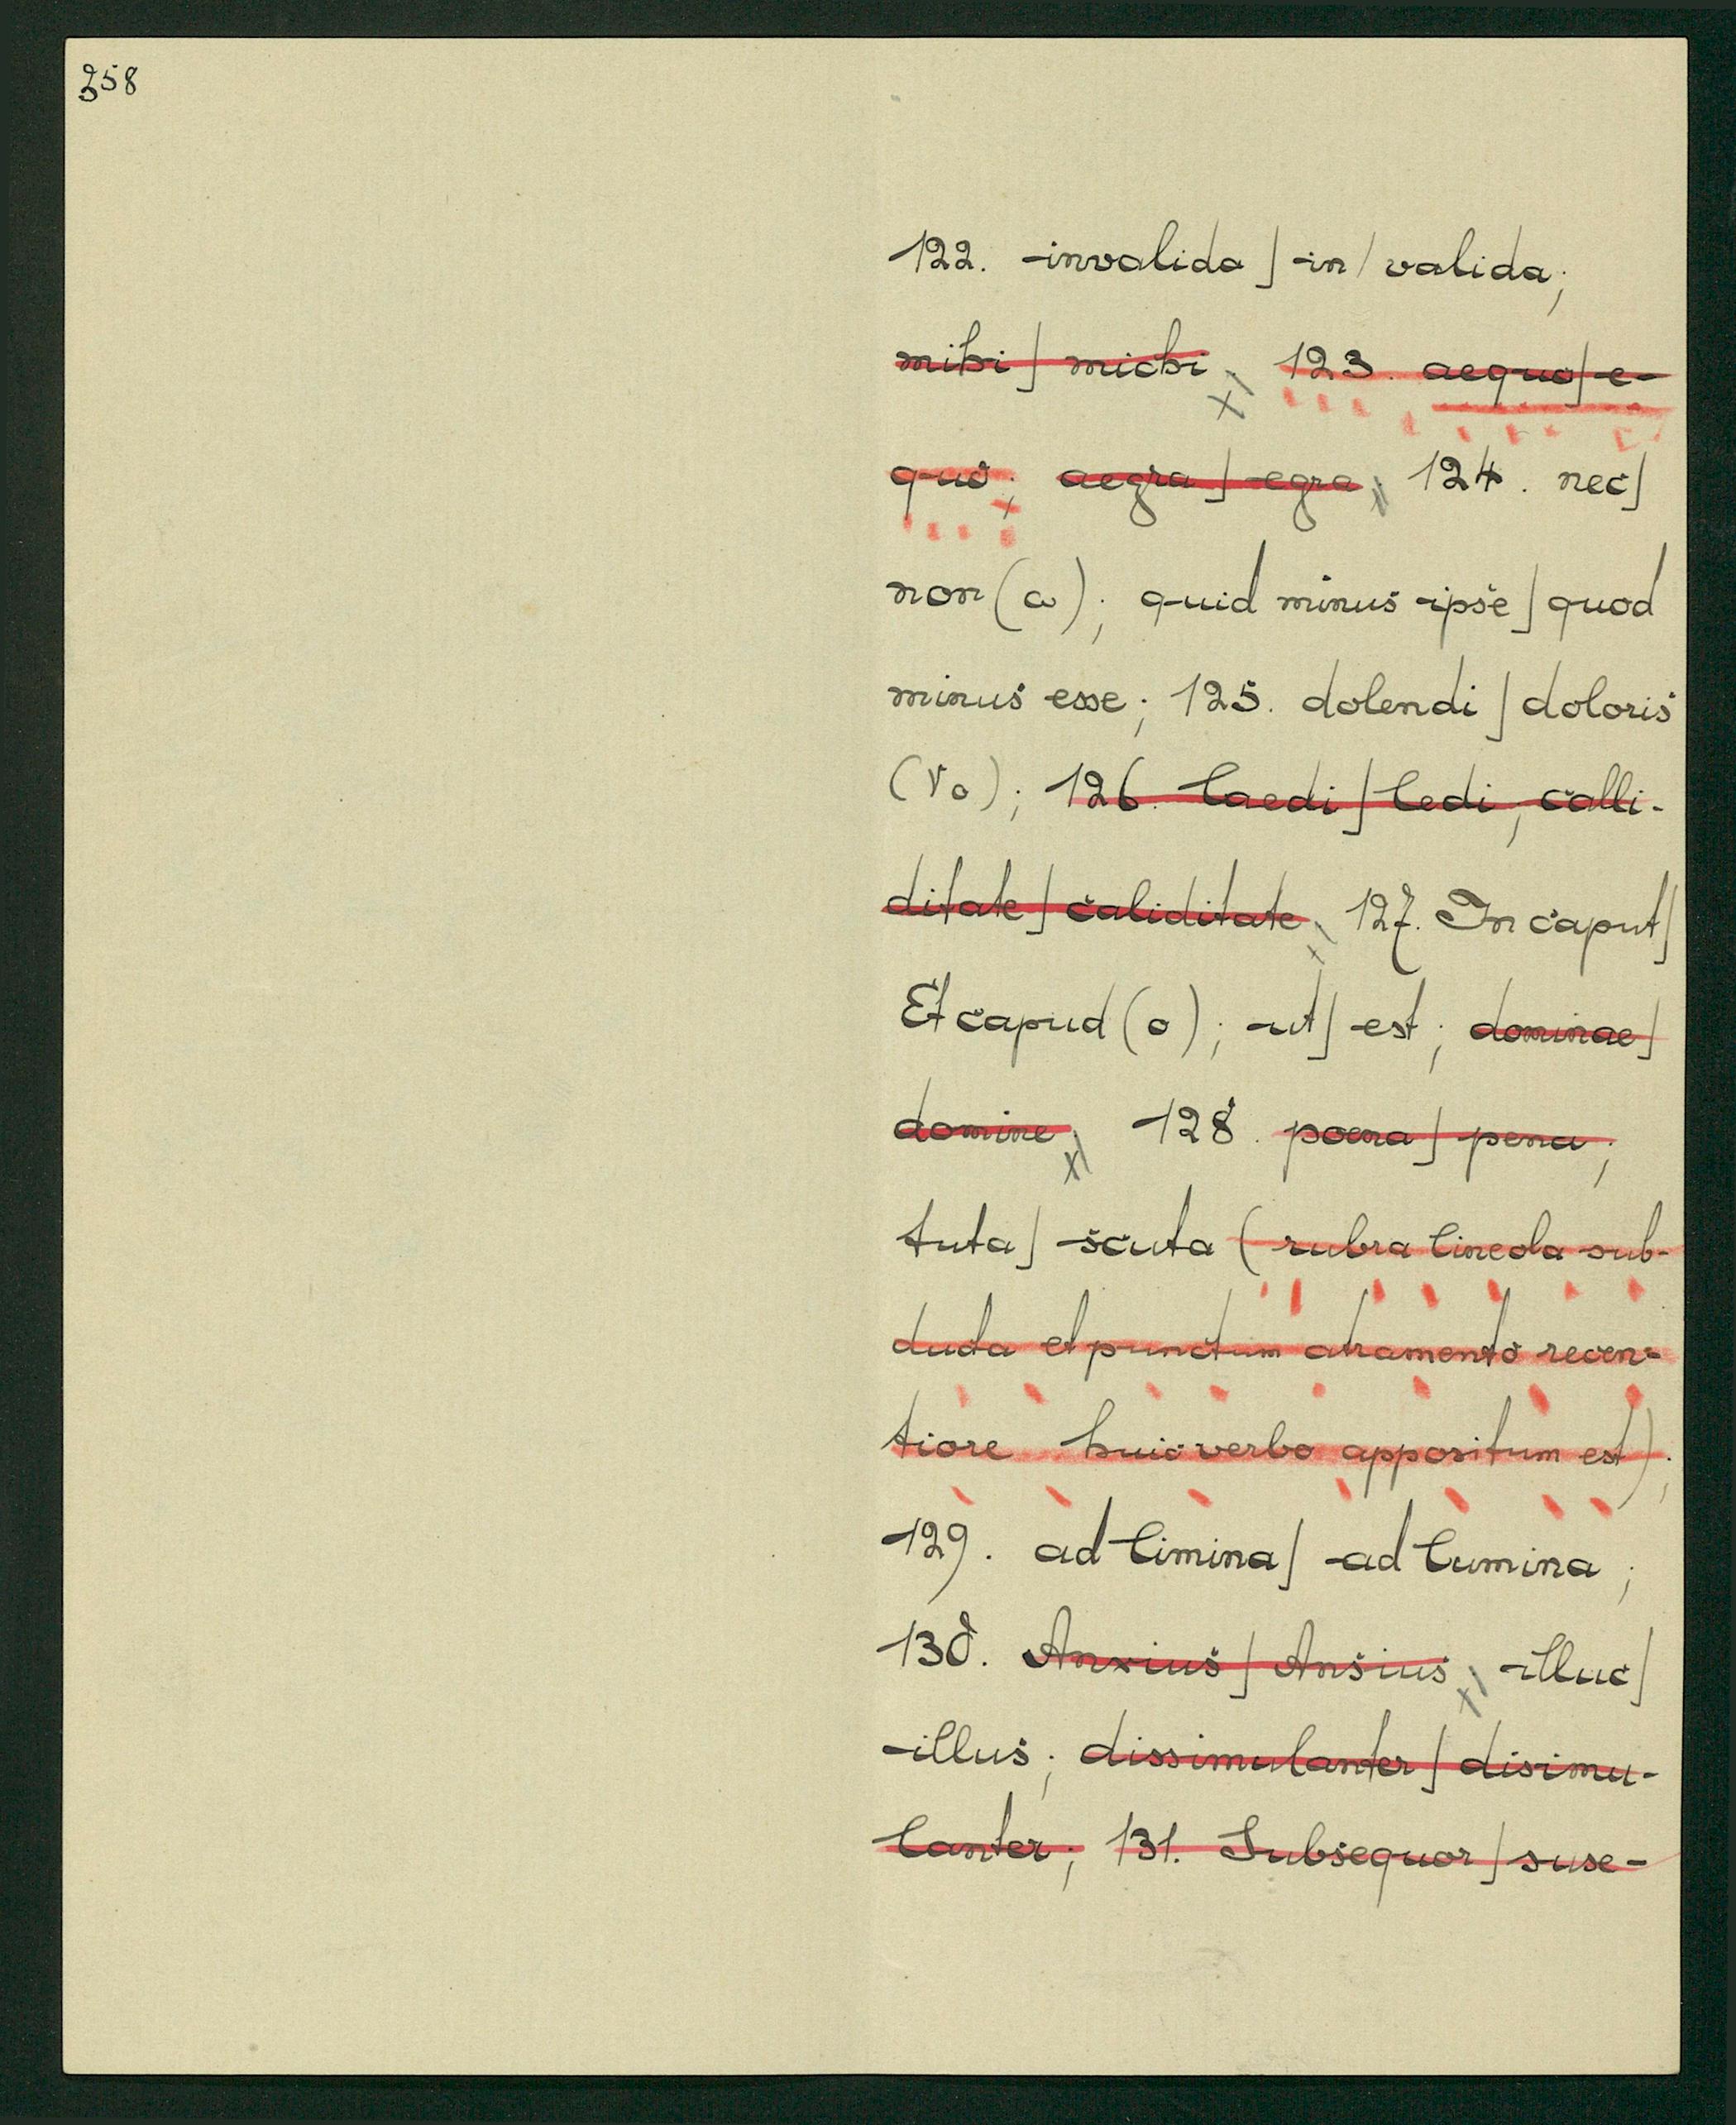 358
122. invalida] in/valida;
mihi] michi; 123. aequo] e-
quo; aegra] egra; 124. nec]
non (a); quid minus ipse] quod
minus esse; 125. dolendi] doloris
(Vo); 126. laedi] ledi; calli-
ditate] caliditate; 127. In caput]
Et capud (o); ut] est; dominae]
domine; 128. poena] pena;
tuta] scuta (rubra lineola sub-
ducta et punctum atramento recen-
tiore huic verbo appositum est);
129. ad limina] ad lumina;
130. Anxius] Ansius; illuc]
illus; dissimulanter] disimu-
lanter; 131. Subsequor] suse-